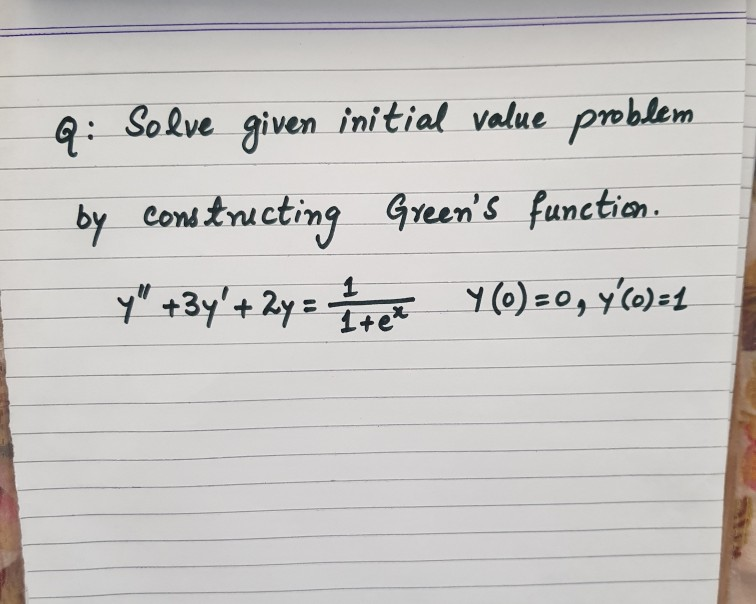 Q: Solve given initial value problem
by constructing Green's function.
y" + 3y' + 2y = 1/(1+e^x) y(0)=0, y'(0)=1